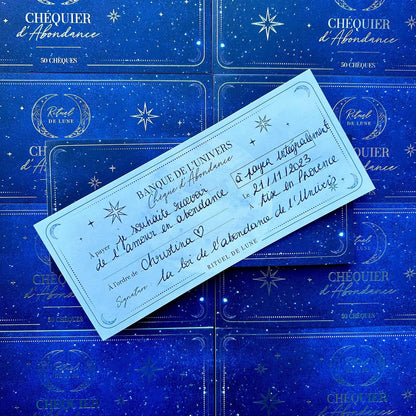 CHÉQUIER
d'Abondance
50 CHÈQUES
Rituel
DE LUNE
CHÉQUIER
d'Abondance
50 CHÈQUES
Rituel
DE LUNE
Rituel
DE LUNE
BANQUE DE L'UNIVERS
Chèque d'Abondance
À payer
je souhaite recevoir
de l'amour en abondance
à payer intégralement
Le 21/11/2023
Aix en Provence
À l'ordre de
Christina ♡
Signature
la loi de l'abondance de l'Univers
RITUEL DE LUNE
CHÉQUIER
d'Abondance
50 CHÈQUES
50 CHÈQUES
Rituel
DE LUNE
Rituel
DE LUNE
CHÉQUIER
d'Abondance
50 CHÈQUES
CHÉQUIER
d'Abondance